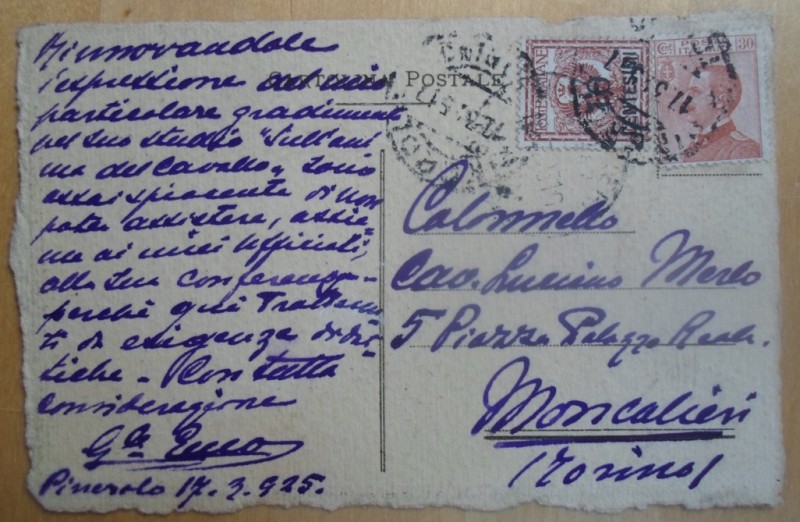 Rinnovandole
l'espressione del mio
particolare gradimento
pel Suo studio "Sull'ani
ma del Cavallo", sono
assai spiacente di non
poter assistere, assie-
me ai miei Ufficiali,
alla Sua conferenza
perchè qui trattenu
ti da esigenze didat-
tiche - Con tutta
considerazione
Pinerolo 17.3.925.
CARTOLINA POSTALE
CENTESIMI
30
Colonnello
Cav. Luciano Merlo
5 Piazza Palazzo Reale.
Moncalieri
(Torino)